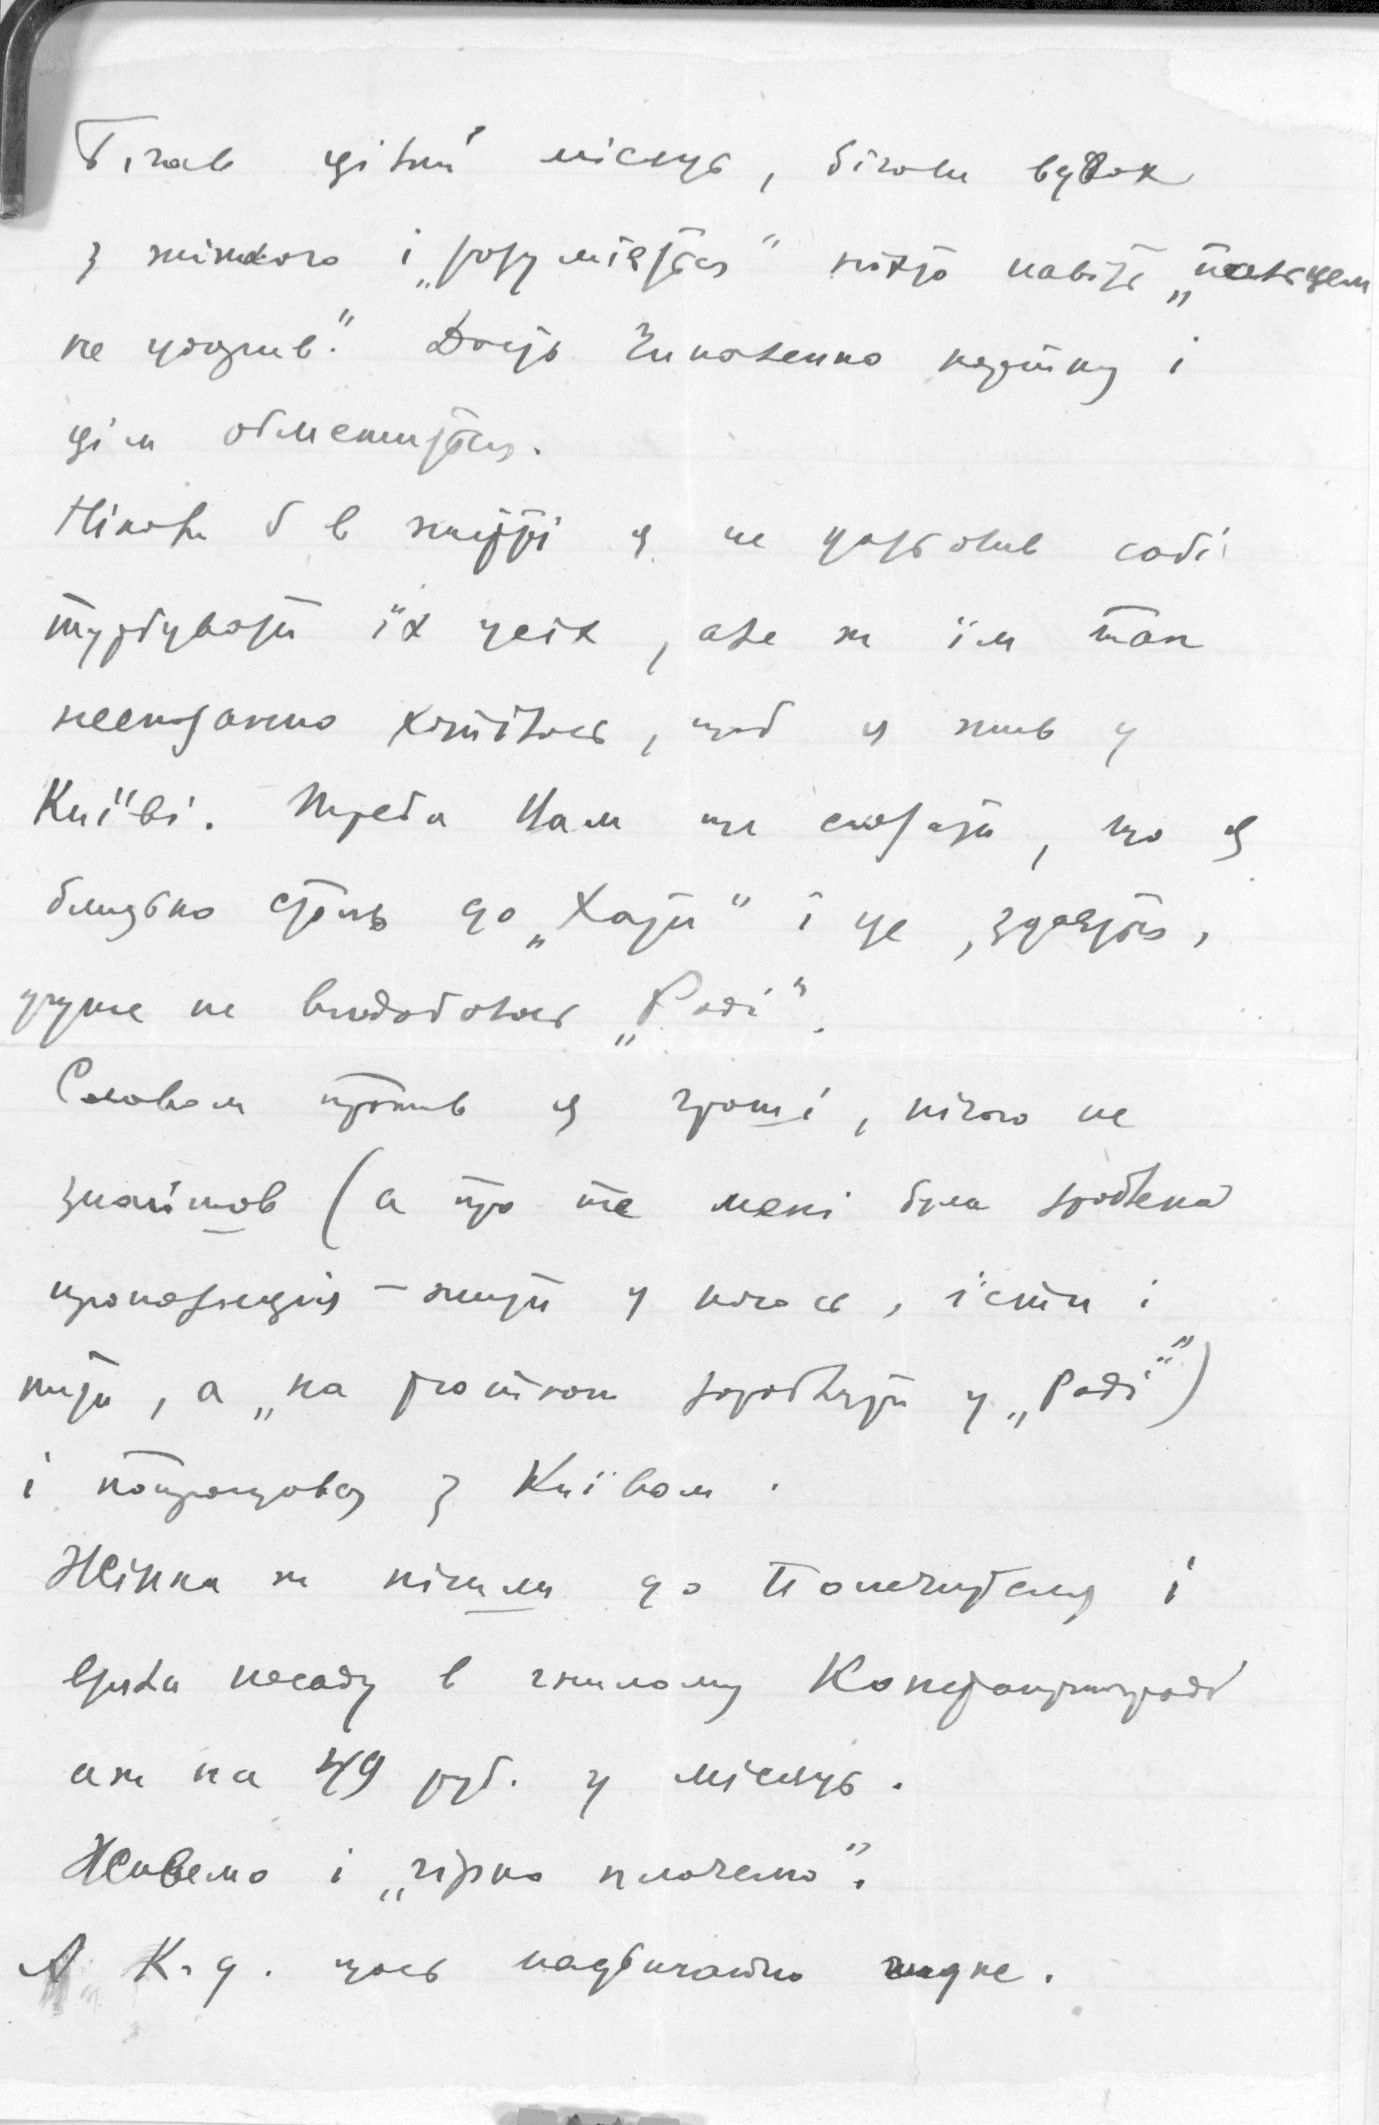 Бігав цілий місяць, бігали вдвох
з жінкою і „розумієтся“ ніхто навіть „пальцем
не ударив“. Дасть Чикаленко картку і
цім обмежится.
Ніколи б в житті я не дозволив собі
турбувати їх усіх, але ж їм так
несказанно хотілось, щоб я жив у
Київі. Треба Вам ще сказати, що я
близько стояв до „Хати“ і це, здаєтся,
дуже не вподобалось „Раді“.
Словом прожив я гроші, нічого не
знайшов (а про те мені була зроблена
пропозиція – жити у когось, їсти і
пити, а „на розтком заробляти у „Раді“)
і попрощався з Київом.
Жінка ж пішла до Попечителя і
взяла посаду в гнилому Констангограді
аж на 49 руб. у місяць.
Живемо і „гірко плачемо“.
А К-д. щось надзвичайно гидке.